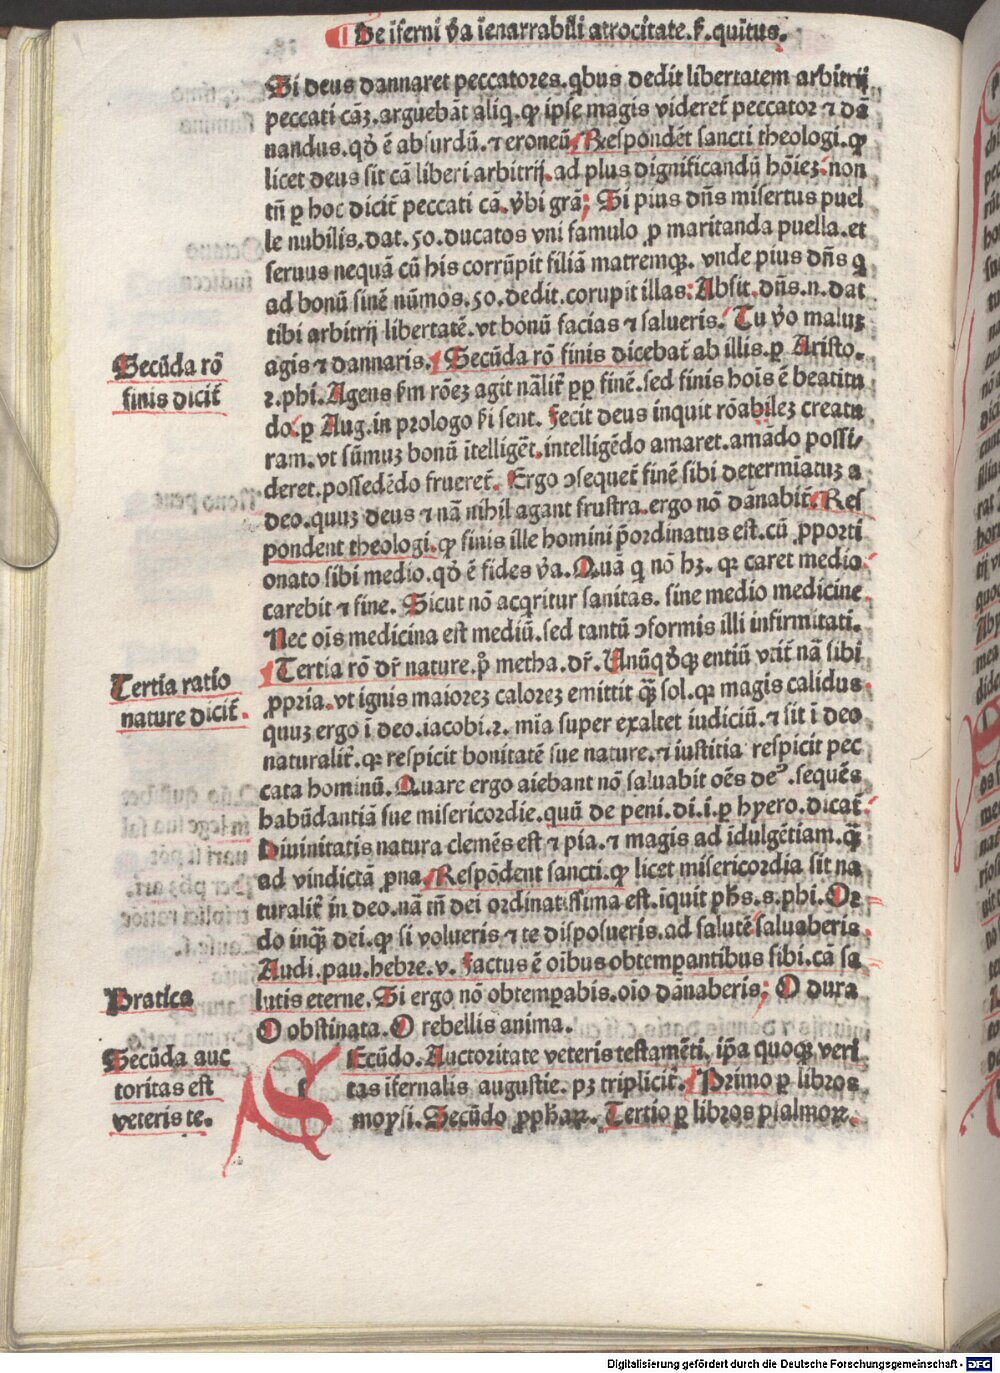 De īferni ꝟa īenarrabili atrocitate. ẜ. quītus.
Si deus dannaret peccatores. qbus dedit libertatem arbitrij
peccati cāꝫ. arguebāt aliq. ꝙ ipse magis videret̄ peccator ⁊ dā
nandus. qđ ē absurdū. ⁊ eroneū Respondēt sancti theologi. ꝙ
licet deus sit cā liberi arbitrij. ad plus dignificandū hōieꝫ. non
tn̄ ꝑ hoc dicit̄ peccati cā. ꝟbi grā; Si pius dn̄s misertus puel
le nubilis. dat. 50. ducatos vni famulo ꝓ maritanda puella. et
seruus nequā cū his corrūpit filiā matremqꝫ. vnde pius dn̄s q
ad bonū finē nūmos. 50. dedit. corupit illas: Absit. dn̄s. n. dat
tibi arbitrij libertatē. vt bonū facias ⁊ salueris. Tu ꝟo maluꝫ
agis ⁊ dannaris. Secūda rō finis dicebat̄ ab illis. ꝑ Aristo.
2. phi. Agens ẜm rōeꝫ agit nālit̄ ꝓp finē. sed finis hoīs ē beatitu
do. ꝑ Aug. in prologo ẜi sent. Fecit deus inquit rōabileꝫ creatu
ram. vt sūmuꝫ bonū ītelligēt. intelligēdo amaret. amādo possi/
deret. possedēdo frueret̄. Ergo ↄsequet̄ finē sibi determīatuꝫ a
deo. quuꝫ deus ⁊ nā nihil agant frustra. ergo nō dānabit̄. Res
pondent theologi. ꝙ finis ille homini p̄ordinatus est. cū ꝓporti
onato sibi medio. qđ ē fides ꝟa. Quā q nō hꝫ. qꝛ caret medio
carebit ⁊ fine. Sicut nō acqritur sanitas. sine medio medicine
Nec oīs medicina est mediū. sed tantū ↄformis illi infirmitati.
Tertia rō dr̄ nature. pͦ metha. dr̄. Unūqđqꝫ entiū vtit̄ nā sibi
ꝓpria. vt ignis maioreꝫ caloreꝫ emittit qꝫ̄ sol. qꝛ magis calidus
quuꝫ ergo ī deo. iacobi. 2. mīa super exaltet iudiciū. ⁊ sit ī deo
naturalit̄. qꝛ respicit bonitatē sue nature. ⁊ iustitia respicit pec
cata hominū. Quare ergo aiebant nō saluabit oēs deꝰ. sequēs
habūdantiā sue misericordie. quū de peni. di. i. ꝑ hyero. dicat̄
Diuinitatis natura clemēs est ⁊ pia. ⁊ magis ad īdulgētiam. qꝫ̄
ad vindictā ꝓna. Respōdent sancti. ꝙ licet misericordia sit na
turalit̄ in deo. nā tn̄ dei ordinatissima est. īquit pħs. s. phi. Or
do inqꝫ̄ dei. ꝙ si volueris ⁊ te disposueris. ad salutē saluaberis
Audi. pau. hebre. v. Factus ē oībus obtemꝑantibus sibi. cā sa
lutis eterne. Si ergo nō obtemꝑabis. oīo dānaberis; O dura
O obstinata. O rebellis anima.
SEcūdo. Auctoritate veteris testamēti. ip̄a quoqꝫ veri
tas ifernalis augustie. pꝫ triplicit̄. Primo ꝑ libros
moysi. Secūdo ꝓphaꝝ. Tertio ꝑ libros psalmoꝝ.
Secūda rō
finis dicit̄
Tertia ratio
nature dicit̄.
Pratica
Secūda auc
toritas est
veteris te.
Digitalisierung gefördert durch die Deutsche Forschungsgemeinschaft - DFG